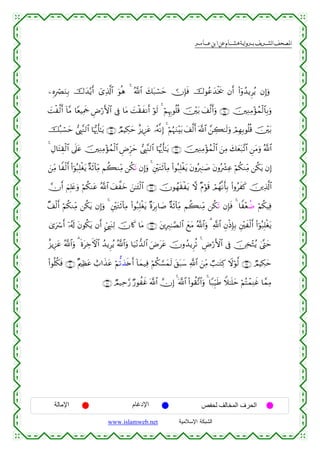 المصحف الشريف برواية هشام عن ابن عامر
وَإِن يُرِيدُوٓا۟ أَن يَخۡدَعُوكَ فَإِنَّ حَسۡبَكَ ٱللَّهُۚ هُوَ ٱلَّذِىٓ أَيَّدَكَ بِنَصۡرِهِۦ
وَبِٱلۡمُؤۡمِنِينَ وَأَلَّفَ بَيۡنَ قُلُوبِهِمۡۚ لَوۡ أَنفَقۡتَ مَا فِى ٱلۡأَرۡضِ جَمِيعًا مَّآ أَلَّفۡتَ
بَيۡنَ قُلُوبِهِمۡ وَلَٰكِنَّ ٱللَّهَ أَلَّفَ بَيۡنَهُمۡۚ إِنَّهُۥ عَزِيزٌ حَكِيمٌ يَٰٓأَيُّهَا ٱلنَّبِىُّ حَسۡبُكَ
ٱللَّهُ وَمَنِ ٱتَّبَعَكَ مِنَ ٱلۡمُؤۡمِنِينَ يَٰٓأَيُّهَا ٱلنَّبِىُّ حَرِّضِ ٱلۡمُؤۡمِنِينَ عَلَى ٱلۡقِتَالِۚ
إِن يَكُن مِّنكُمۡ عِشۡرُونَ صَٰبِرُونَ يَغۡلِبُوا۟ مِا۟ئَتَيۡنِۚ وَإِن تَكُن مِّنكُم مِّا۟ئَةٌ يَغۡلِبُوٓا۟ أَلۡفًا مِّنَ
ٱلَّذِينَ كَفَرُوا۟ بِأَنَّهُمۡ قَوۡمٌ لَّا يَفۡقَهُونَ ٱلۡـَٰٔنَ خَفَّفَ ٱللَّهُ عَنكُمۡ وَعَلِمَ أَنَّ
فِيكُمۡ ضُعۡفًاۚ فَإِن تَكُن مِّنكُم مِّا۟ئَةٌ صَابِرَةٌ يَغۡلِبُوا۟ مِا۟ئَتَيۡنِۚ وَإِن يَكُن مِّنكُمۡ أَلۡفٌ
يَغۡلِبُوٓا۟ أَلۡفَيۡنِ بِإِذۡنِ ٱللَّهِۗ وَٱللَّهُ مَعَ ٱلصَّٰبِرِينَ مَا كَانَ لِنَبِىٍّ أَن يَكُونَ لَهُۥٓ أَسۡرَىٰ
حَتَّىٰ يُثۡخِنَ فِى ٱلۡأَرۡضِۚ تُرِيدُونَ عَرَضَ ٱلدُّنۡيَا وَٱللَّهُ يُرِيدُ ٱلۡأٓخِرَةَۗ وَٱللَّهُ عَزِيزٌ
حَكِيمٌ لَّوۡلَا كِتَٰبٌ مِّنَ ٱللَّهِ سَبَقَ لَمَسَّكُمۡ فِيمَآ أَخَذتُّمۡ عَذَابٌ عَظِيمٌ فَكُلُوا۟
مِمَّا غَنِمۡتُمۡ حَلَٰلًا طَيِّبًاۚ وَٱتَّقُوا۟ ٱللَّهَۚ إِنَّ ٱللَّهَ غَفُورٌ رَّحِيمٌ
الحرف المخالف لحفص الإدغام الإمالة
الشبكة الإسلامية www.islamweb.net